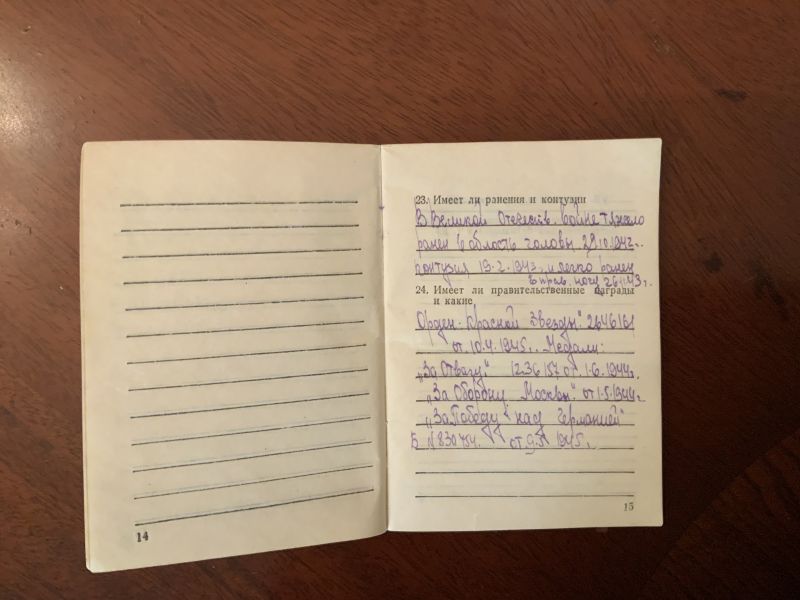 14
23. Имеет ли ранения и контузии
В Великой Отечеств. войне тяжело
ранен в область головы 29.10.1942г.
контузия 19.2.1943, и легко ранен
в прав. ногу 26.11.43г.
24. Имеет ли правительственные награды
и какие
Орден „Красной Звезды" 2646161
от 10.4.1945г. Медали:
„За Отвагу" 1236157 от 1.6.1944г.
„За Оборону Москвы" от 1.5.1944г.
„За Победу" над Германией"
Б №830754. от 9.5 1945г.
15